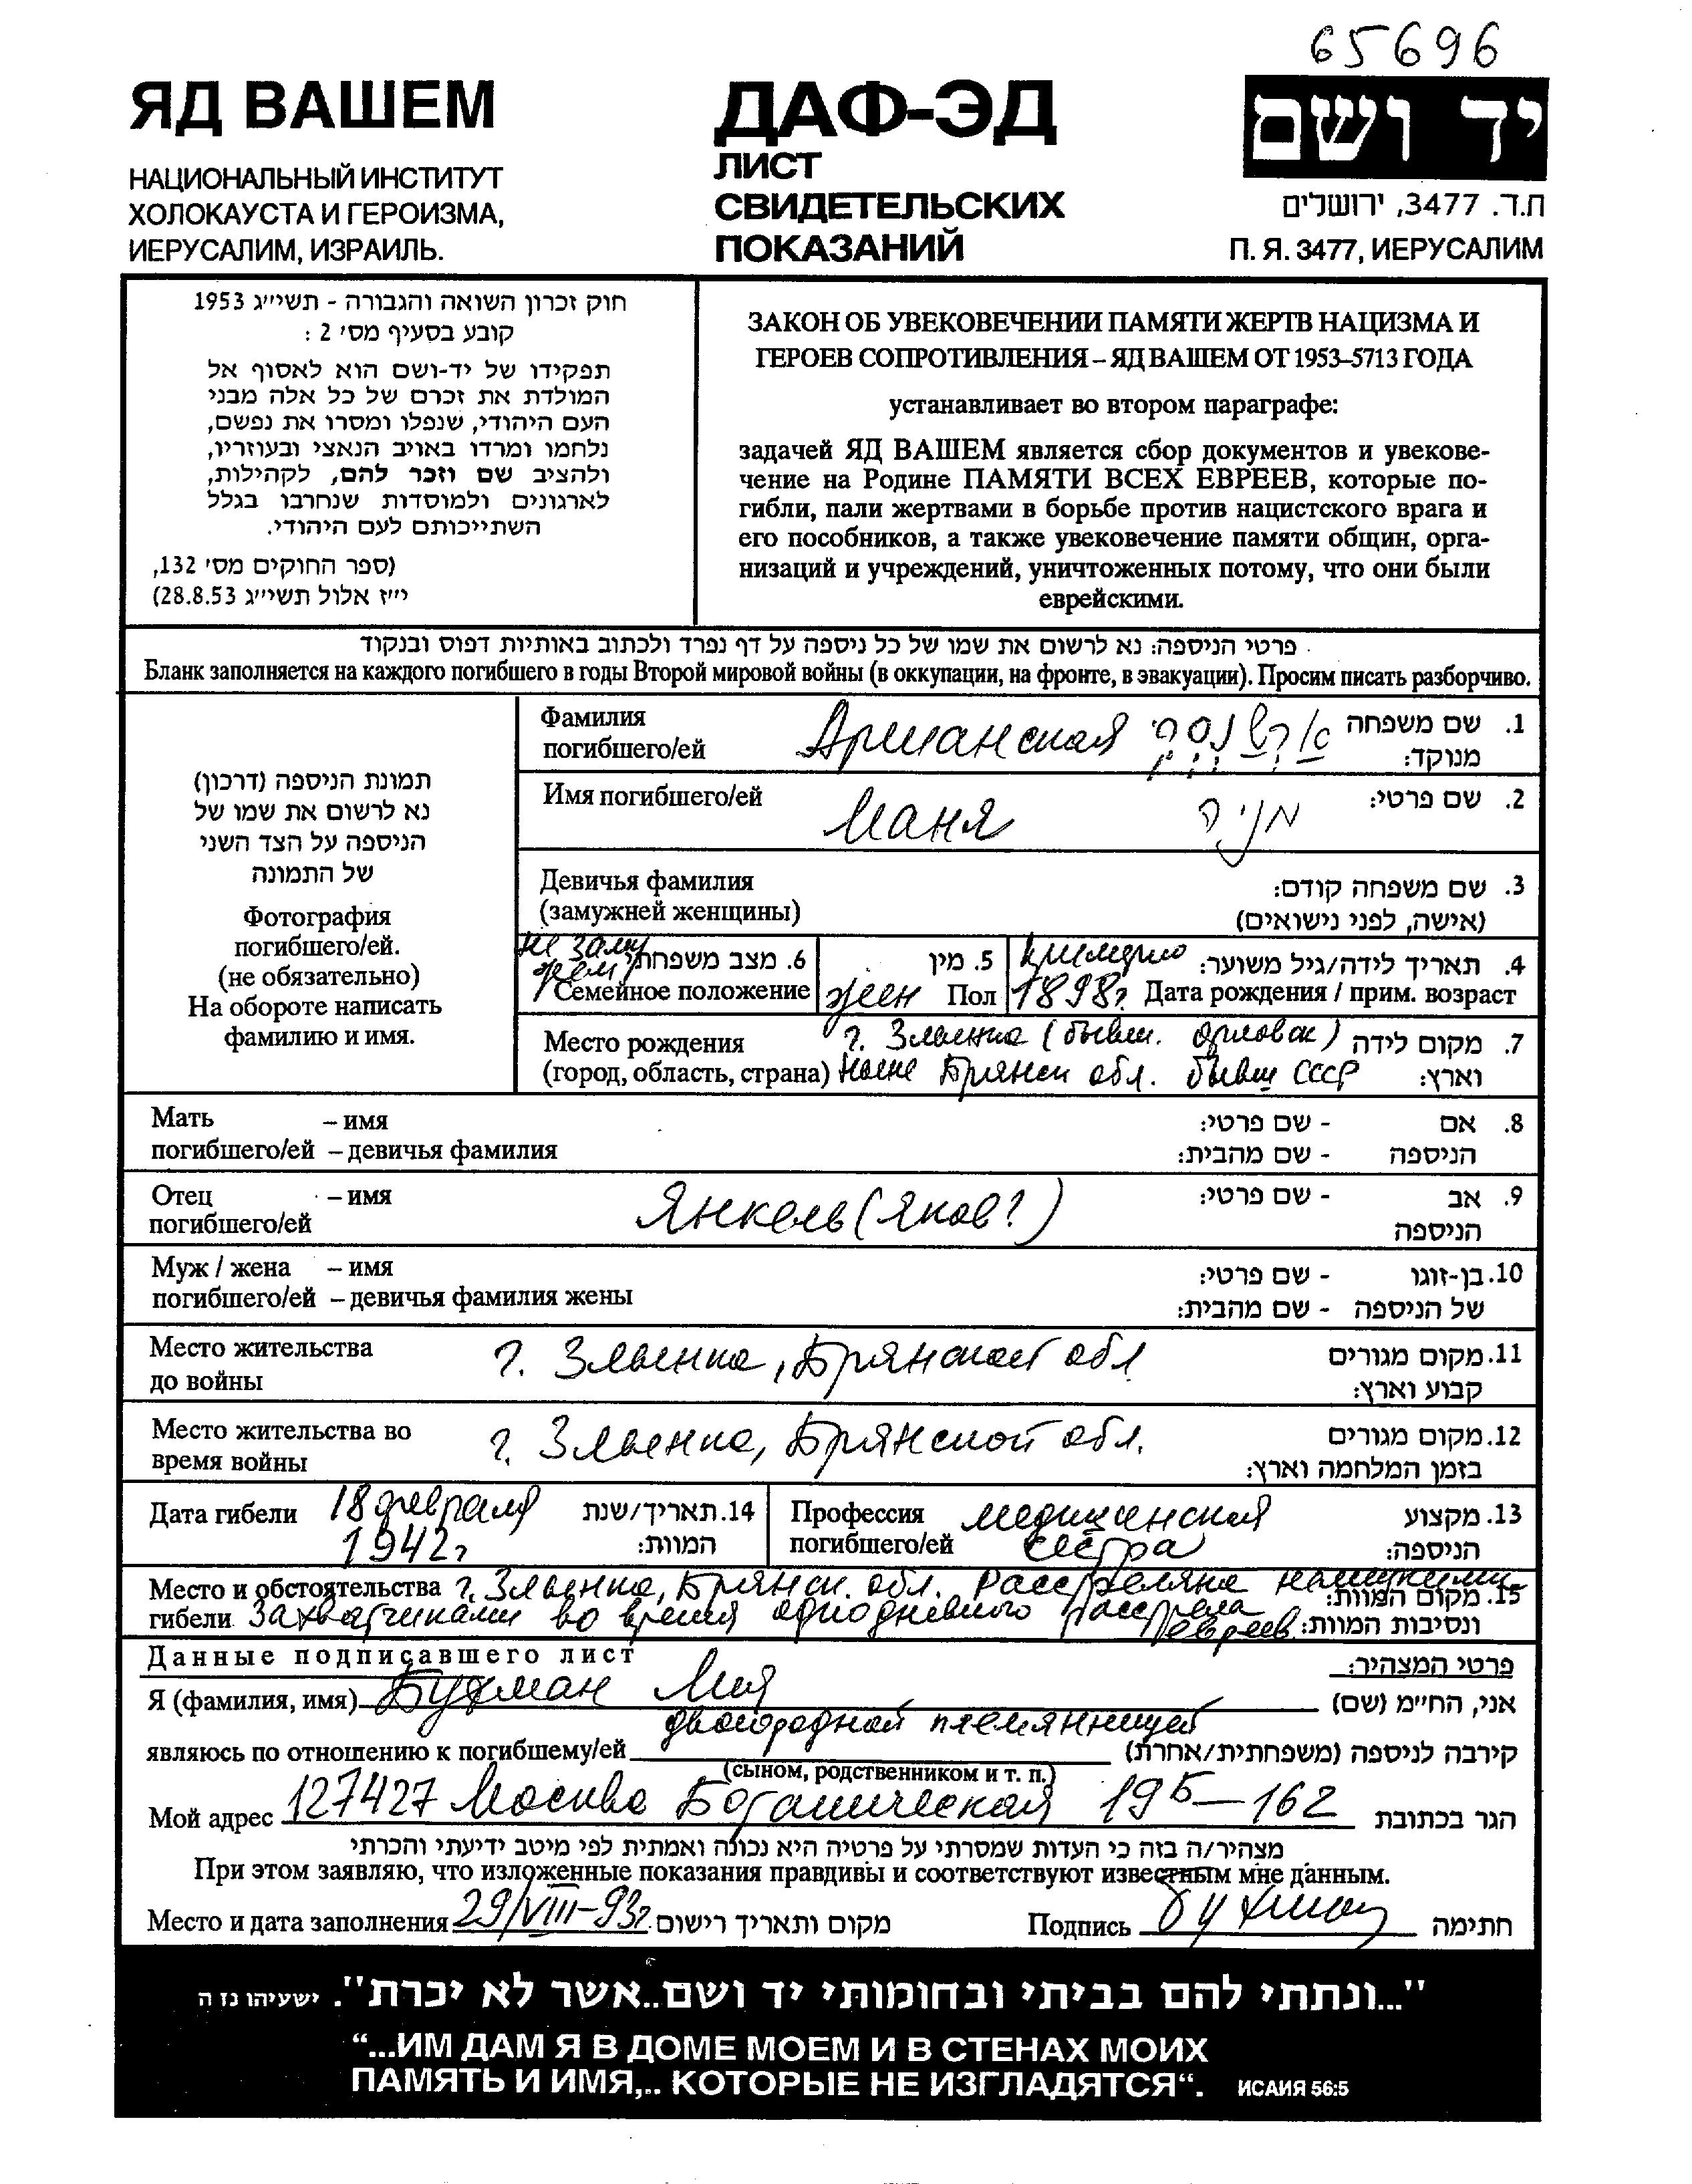 65696
ЯД ВАШЕМ
НАЦИОНАЛЬНЫЙ ИНСТИТУТ
ХОЛОКАУСТА И ГЕРОИЗМА,
ИЕРУСАЛИМ, ИЗРАИЛЬ.
ДАФ-ЭД
ЛИСТ
СВИДЕТЕЛЬСКИХ
ПОКАЗАНИЙ
יד ושם
ת.ד. 3477, ירושלים
П. Я. 3477, ИЕРУСАЛИМ
חוק זכרון השואה והגבורה - תשי״ג 1953
קובע בסעיף מס׳ 2 :
תפקידו של יד-ושם הוא לאסוף אל
המולדת את זכרם של כל אלה מבני
העם היהודי, שנפלו ומסרו את נפשם,
נלחמו ומרדו באויב הנאצי ובעוזריו,
ולהציב שם וזכר להם, לקהילות,
לארגונים ולמוסדות שנחרבו בגלל
השתייכותם לעם היהודי.
(ספר החוקים מס׳ 132,
י״ז אלול תשי״ג 28.8.53)
ЗАКОН ОБ УВЕКОВЕЧЕНИИ ПАМЯТИ ЖЕРТВ НАЦИЗМА И
ГЕРОЕВ СОПРОТИВЛЕНИЯ – ЯД ВАШЕМ ОТ 1953–5713 ГОДА
устанавливает во втором параграфе:
задачей ЯД ВАШЕМ является сбор документов и увекове-
чение на Родине ПАМЯТИ ВСЕХ ЕВРЕЕВ, которые по-
гибли, пали жертвами в борьбе против нацистского врага и
его пособников, а также увековечение памяти общин, орга-
низаций и учреждений, уничтоженных потому, что они были
еврейскими.
פרטי הניספה: נא לרשום את שמו של כל ניספה על דף נפרד ולכתוב באותיות דפוס ובנקוד
Бланк заполняется на каждого погибшего в годы Второй мировой войны (в оккупации, на фронте, в эвакуации). Просим писать разборчиво.
תמונת הניספה (דרכון)
נא לרשום את שמו של
הניספה על הצד השני
של התמונה
Фотография
погибшего/ей.
(не обязательно)
На обороте написать
фамилию и имя.
Фамилия
погибшего/ей Аршанская ארשנסקי 1. שם משפחה
מנוקד:
Имя погибшего/ей Маня מניה 2. שם פרטי:
Девичья фамилия
(замужней женщины)
3. שם משפחה קודם:
(אישה, לפני נישואים)
не заму
жем 6. מצב משפחתי
Семейное положение
5. מין
жен Пол
примерно 4. תאריך לידה/גיל משוער:
1898г Дата рождения / прим. возраст
Место рождения г. Злынка (бывш. Орловск) 7. מקום לידה
(город, область, страна) Ныне Брянск обл. бывш СССР וארץ:
Мать – имя
погибшего/ей – девичья фамилия
8. אם - שם פרטי:
הניספה - שם מהבית:
Отец – имя
погибшего/ей
Янкель (Яков?)
9. אב - שם פרטי:
הניספה
Муж / жена – имя
погибшего/ей – девичья фамилия жены
10. בן-זוגו - שם פרטי:
של הניספה - שם מהבית:
Место жительства
до войны
г. Злынка, Брянской обл
11. מקום מגורים
קבוע וארץ:
Место жительства во
время войны
г. Злынка, Брянской обл.
12. מקום מגורים
בזמן המלחמה וארץ:
Дата гибели 18 февраля
1942г
14. תאריך/שנת
המוות:
Профессия медицинская
погибшего/ей сестра
13. מקצוע
הניספה:
Место и обстоятельства г. Злынка, Брянск. обл. Расстреляна
15. מקום המוות:
гибели захватчиками во время однодневного расстрела
евреев ונסיבות המוות:
Данные подписавшего лист פרטי המצהיר:
Я (фамилия, имя) Бухман Мия אני, החי״מ (שם)
двоюродной племянницей
являюсь по отношению к погибшему/ей קירבה לניספה (משפחתית/אחרת)
(сыном, родственником и т. п.)
Мой адрес 127427 Москва Ботаническая 19Б–162 הגר בכתובת
מצהיר/ה בזה כי העדות שמסרתי על פרטיה היא נכונה ואמתית לפי מיטב ידיעתי והכרתי
При этом заявляю, что изложенные показания правдивы и соответствуют известным мне данным.
Место и дата заполнения 29/VIII–93г. מקום ותאריך רישום Подпись Бухман חתימה
"...ונתתי להם בביתי ובחומותי יד ושם..אשר לא יכרת". ישעיהו נז ה
“...ИМ ДАМ Я В ДОМЕ МОЕМ И В СТЕНАХ МОИХ
ПАМЯТЬ И ИМЯ,.. КОТОРЫЕ НЕ ИЗГЛАДЯТСЯ“. ИСАИЯ 56:5